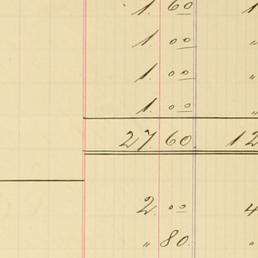 1. 60 1
1 00 "
1. 00 "
1. 00 "
27. 60. 12
2. 00 4
" 80. "